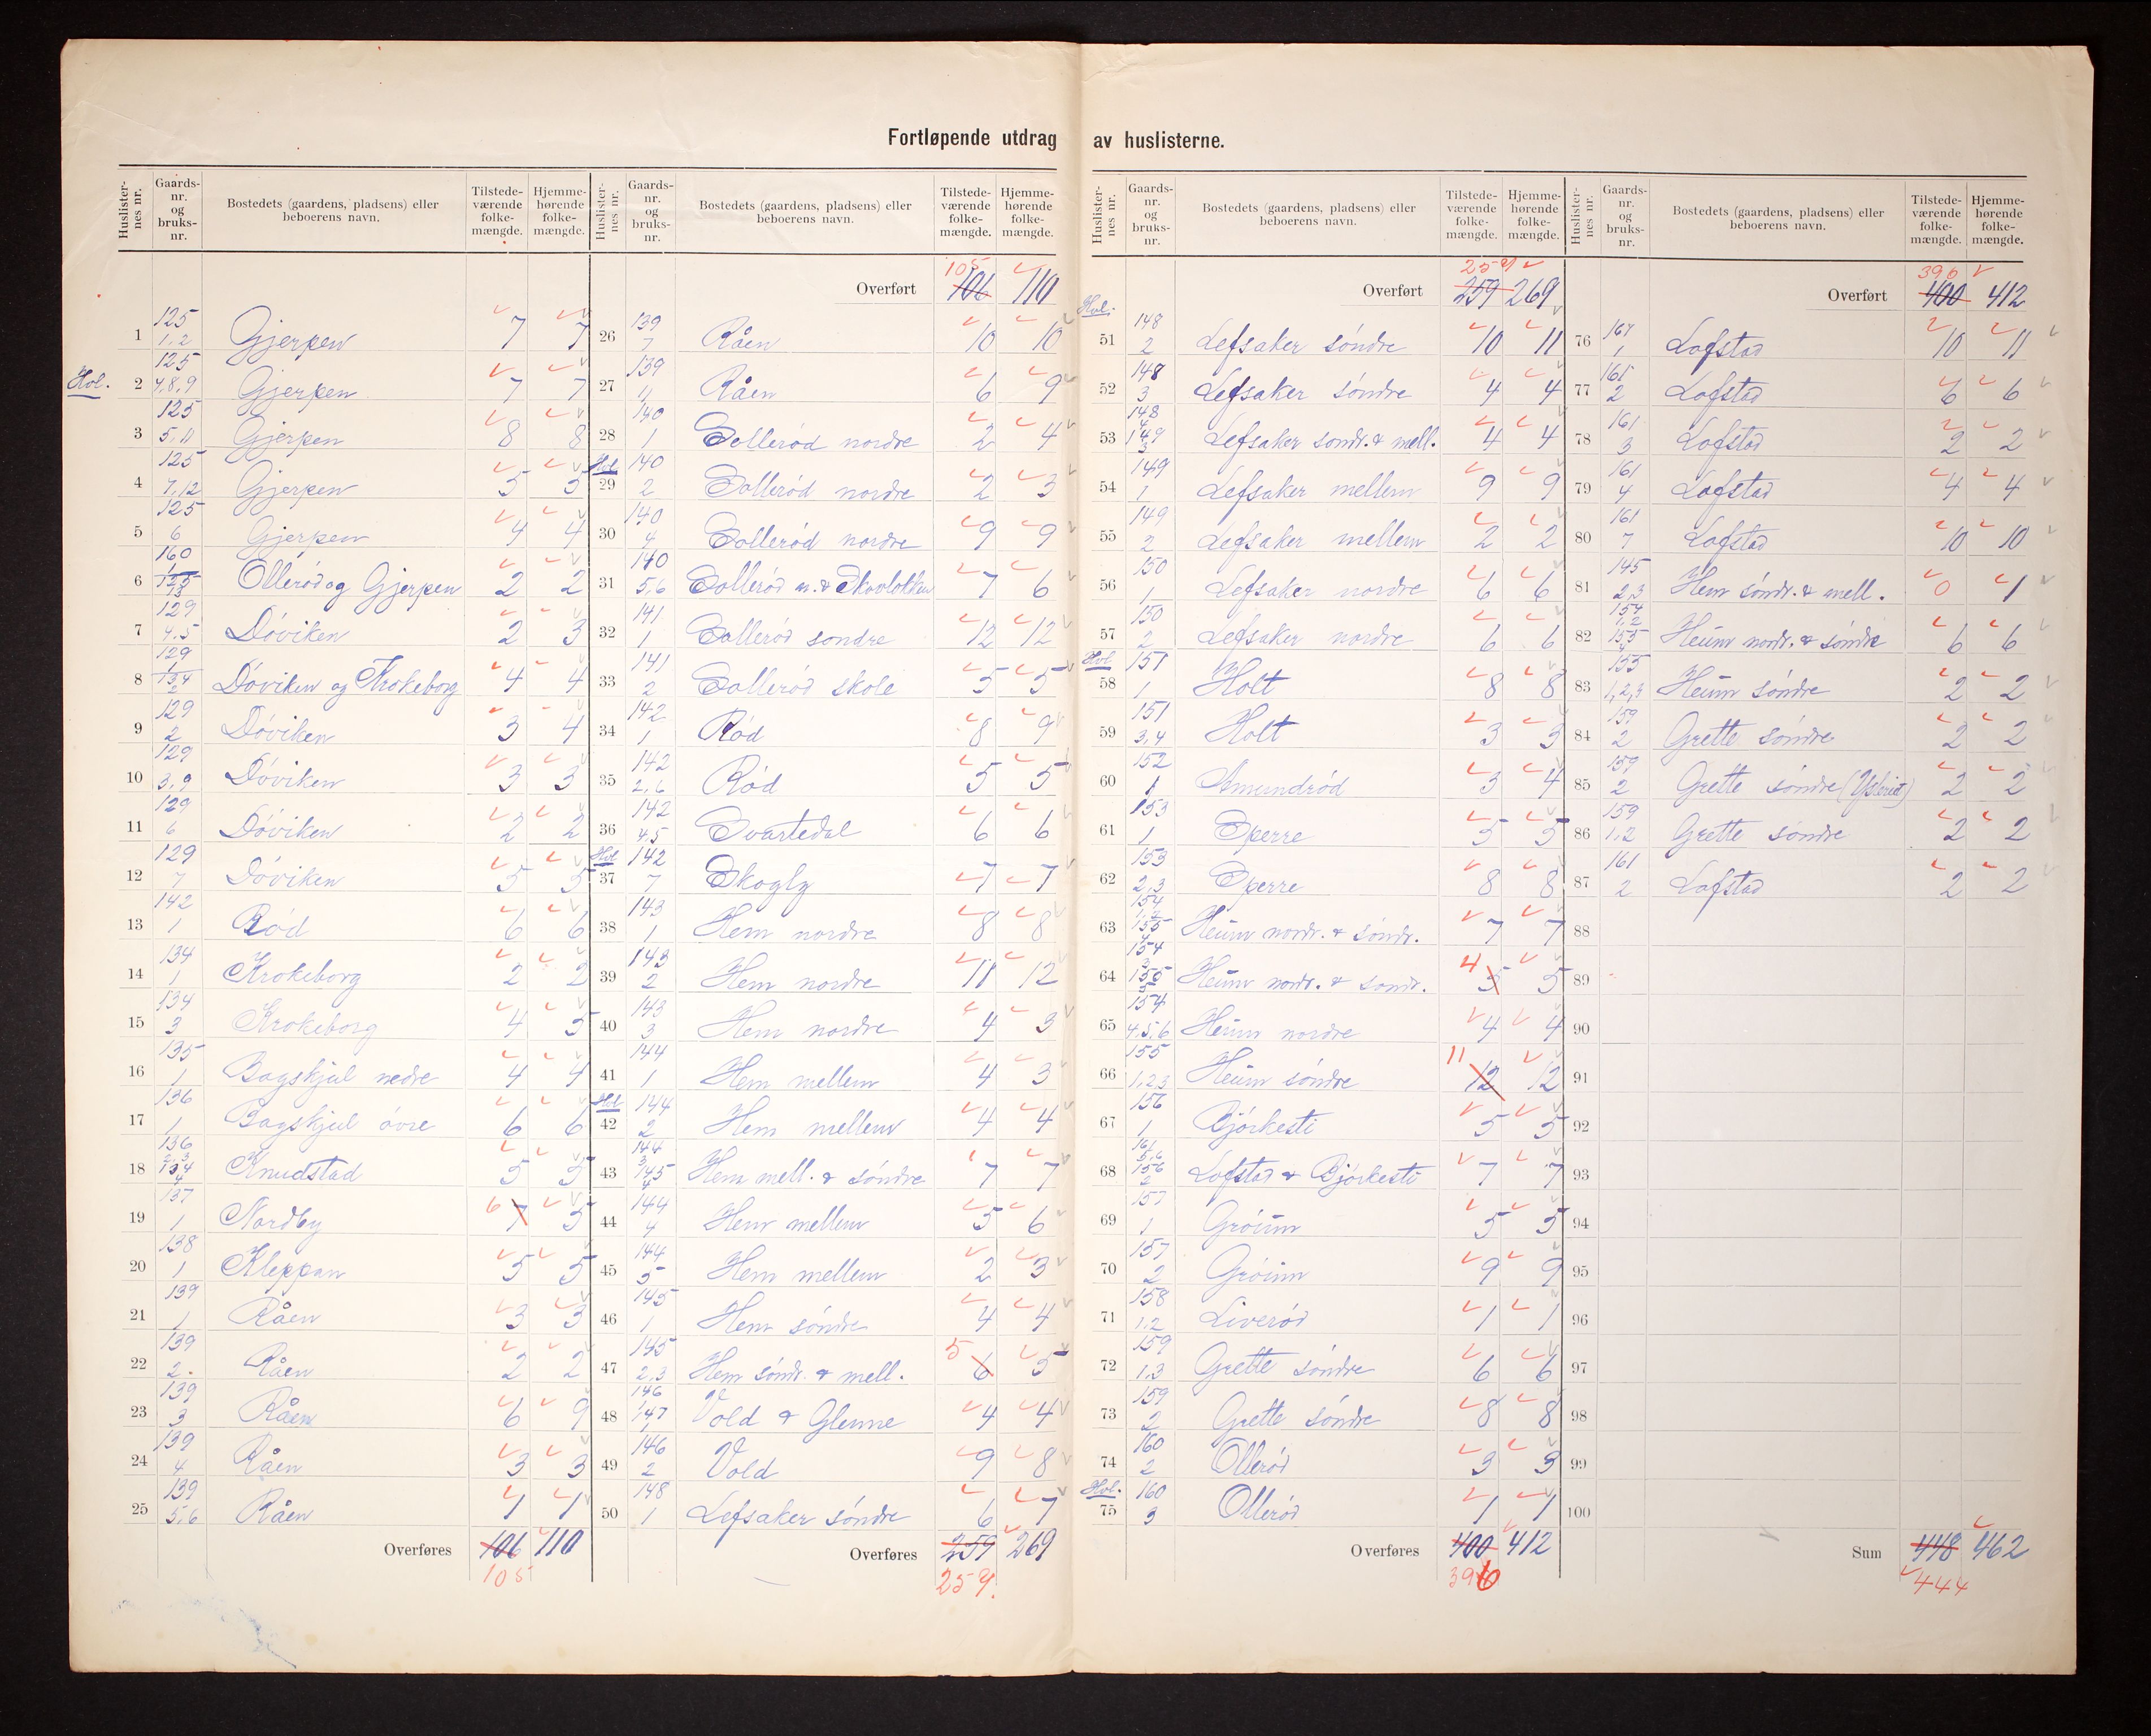 Fortløpende utdrag av huslisterne.
Huslisternes nr. Gaardsnr. og bruksnr. Bostedets (gaardens, pladsens) eller beboerens navn. Tilstedeværende folkemængde. Hjemmehørende folkemængde.
1 125 1,2 Gjerpen 7 7
Hol. 2 125 4,8,9 Gjerpen 7 7
3 125 5,11 Gjerpen 8 8
4 125 7,12 Gjerpen 5 5
5 125 6 Gjerpen 4 4
6 160 1 125 13 Ollerød og Gjerpen 2 2
7 129 4,5 Döviken 2 3
8 129 1 134 2 Döviken og Krokeborg 4 4
9 129 2 Döviken 3 4
10 129 3,9 Döviken 3 3
11 129 6 Döviken 2 2
12 129 7 Döviken 5 5
13 142 1 Rød 6 6
14 134 1 Krokeborg 2 2
15 134 3 Krokeborg 4 5
16 135 1 Bagskjul nedre 4 4
17 136 1 Bagskjul övre 6 6
18 136 2,3 134 4 Knudstad 5 5
19 137 1 Nordby 6 7 5
20 138 1 Kleppan 5 5
21 139 1 Råen 3 3
22 139 2. Råen 2 2
23 139 3 Råen 6 9
24 139 4 Råen 3 3
25 139 5,6 Råen 1 1
Overføres 106 110
105
Huslisternes nr. Gaardsnr. og bruksnr. Bostedets (gaardens, pladsens) eller beboerens navn. Tilstedeværende folkemængde. Hjemmehørende folkemængde.
105
Overført 106 110
26 139 7 Råen 10 10
27 139 11 Råen 6 9
28 140 1 Sollerød nordre 2 4
Hol 29 140 2 Sollerød nordre 2 3
30 140 4 Sollerød nordre 9 9
31 140 5,6 Sollerød n. & 7 6
32 141 1 Sollerød sondre 12 12
33 141 2 Sollerød skole 5 5
34 142 1 Rød 8 9
35 142 2,6 Rød 5 5
36 142 4,5 Svartedal 6 6
Hol 37 142 7 Skogly 7 7
38 143 1 Hem nordre 8 8
39 143 2 Hem nordre 11 12
40 143 3 Hem nordre 4 3
41 144 1 Hem mellem 4 3
Hol 42 144 2 Hem mellem 4 4
43 144 3 145 4 Hem mell. & söndre 7 7
44 144 4 Hem mellem 5 6
45 144 5 Hem mellem 2 3
46 145 1 Hem söndre 4 4
47 145 2,3 Hem söndr. & mell. 5 6 5
48 146 147 1 Vold & Glenne 4 4
49 146 2 Vold 9 8
50 148 1 Lefsaker söndre 6 7
Overføres 259 269
257.
Huslisternes nr. Gaardsnr. og bruksnr. Bostedets (gaardens, pladsens) eller beboerens navn. Tilstedeværende folkemængde. Hjemmehørende folkemængde.
257
Overført 259 269
Hol. 51 148 2 Lefsaker söndre 10 11
52 148 3 Lefsaker söndre 4 4
53 148 4 149 3 Lefsaker sondr. & mell. 4 4
54 149 1 Lefsaker mellem 9 9
55 149 2 Lefsaker mellem 2 2
56 150 1 Lefsaker nordre 6 6
57 150 2 Lefsaker nordre 6 6
Hol 58 151 1 Holt 8 8
59 151 3,4 Holt 3 3
60 152 1 Amundrød 3 4
61 153 1 Sperre 5 5
62 153 2,3 Sperre 8 8
63 154 1,2 155 4 Heum nordr. & söndr. 7 7
64 154 3 155 5 Heum nordr. & sondr. 4 5 5
65 154 4,5,6 Heum nordre 4 4
66 155 1,2,3 Heum söndre 11 12 12
67 156 1 Bjørkesti 5 5
68 161 5,6 156 2 Lofstad & Bjørkesti 7 7
69 157 1 Gröinn 5 5
70 157 2 Gröinn 9 9
71 158 1,2 Liverød 1 1
72 159 1,3 Grette söndre 6 6
73 159 2 Grette söndre 8 8
74 160 2 Ollerød 3 3
Hol. 75 160 3 Ollerød 1 1
Overføres 400 412
396
Huslisternes nr. Gaardsnr. og bruksnr. Bostedets (gaardens, pladsens) eller beboerens navn. Tilstedeværende folkemængde. Hjemmehørende folkemængde.
396
Overført 400 412
76 161 1 Lofstad 10 11
77 161 2 Lofstad 6 6
78 161 3 Lofstad 2 2
79 161 4 Lofstad 4 4
80 161 7 Lofstad 10 10
81 145 2,3 Hem söndr. & mell. 0 1
82 154 1,2 155 4 Heum nordr. & söndre 6 6
83 155 1,2,3 Heum söndre 2 2
84 159 2 Grette söndre 2 2
85 159 2 Grette söndre 2 2
86 159 1,2 Grette söndre 2 2
87 161 2 Lofstad 2 2
88
89
90
91
92
93
94
95
96
97
98
99
100
Sum 448 462
444